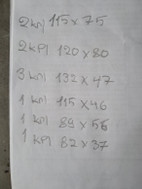 2 kpl 115 x 75
2 kpl 120 x 80
3 kpl 132 x 47
1 kpl 115 x 46
1 kpl 89 x 56
1 kpl 82 x 37